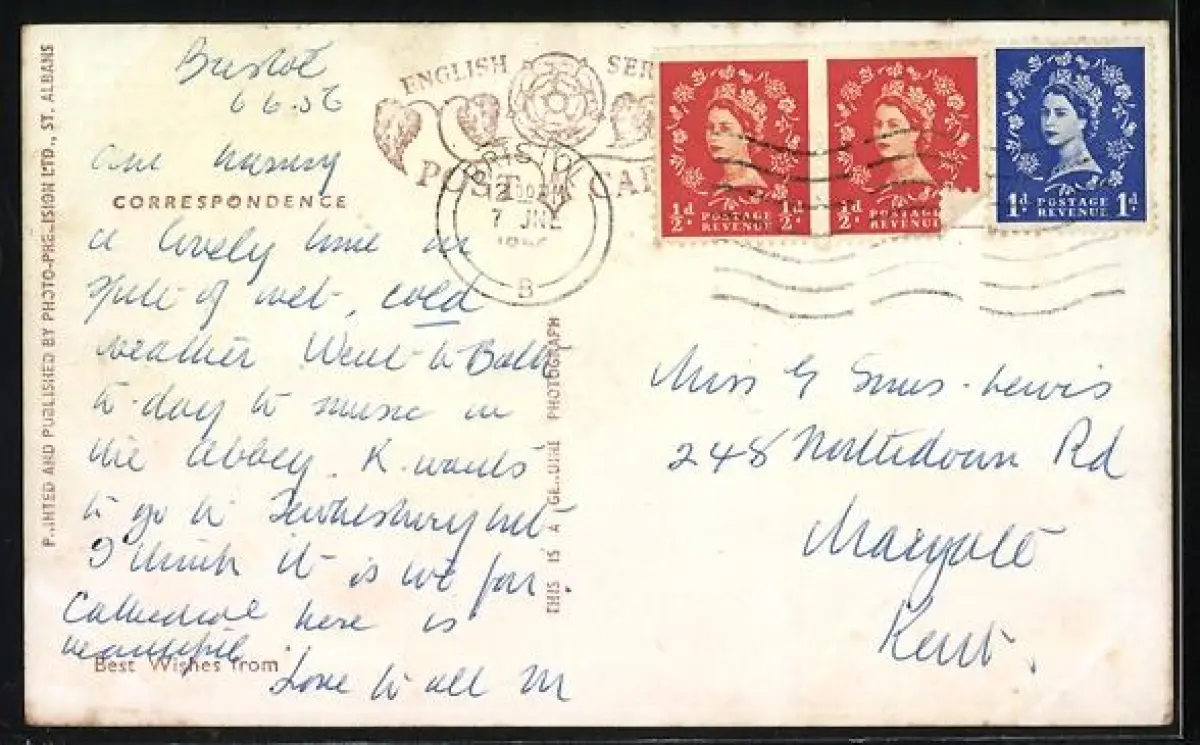 PRINTED AND PUBLISHED BY PHOTO-PRECISION LTD., ST. ALBANS
Bristol
6.6.56
Are having
CORRESPONDENCE
a lovely time in
spite of wet, cold
weather Went to Bath
to-day to music in
the Abbey. K. wants
to go to Tewkesbury but
I think it is too far
Cathedral here is
beautiful.
Best Wishes from
Love to all M
THIS IS A GENUINE PHOTOGRAPH
ENGLISH SER
POST CAR
BRISTOL
12
7 JNE
1956
B
½d ½d
POSTAGE
REVENUE
½d
POSTAGE
REVENUE
1d 1d
POSTAGE
REVENUE
Miss G Sims-Lewis
248 Northdown Rd
Margate
Kent.